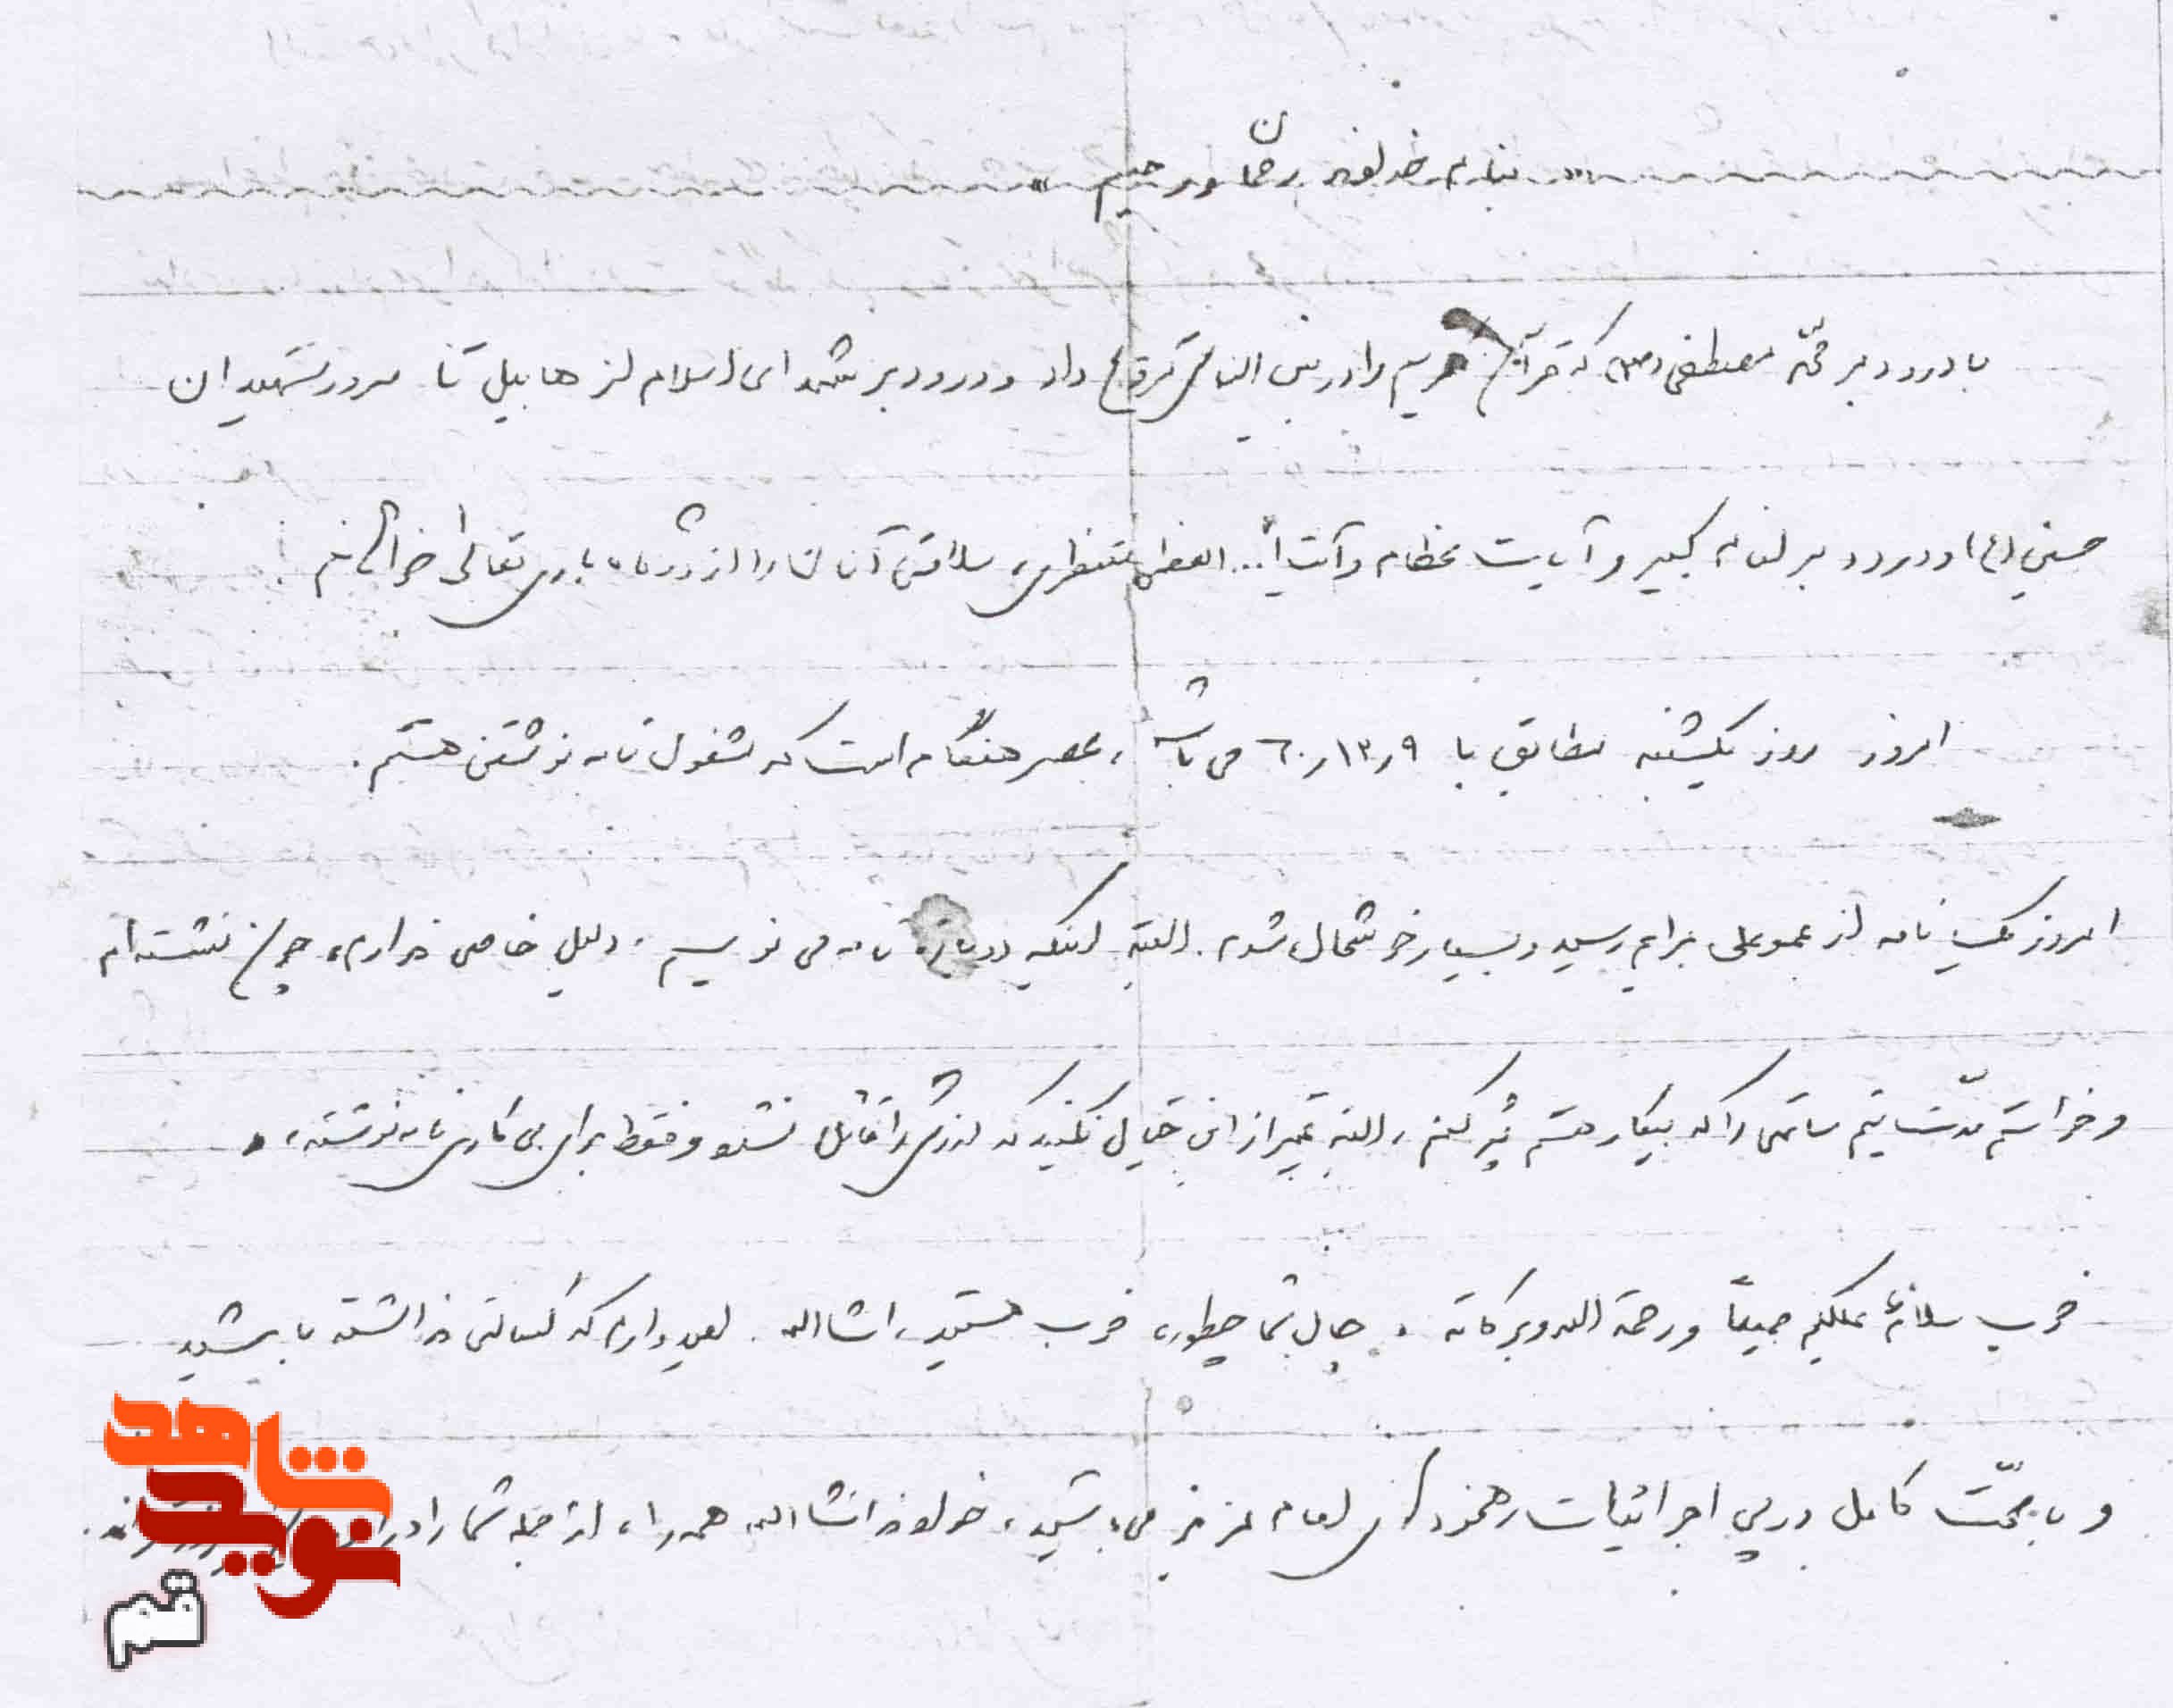 « بنام خداوند رحمان و رحیم »
با درود بر محمّد مصطفی (ص) که قرآن کریم را در بین الناس ترویج داد و درود بر شهدای اسلام از هابیل تا سرور شهیدان
حسین (ع) و درود بر امام کبیر و آیات عظام و آیت ا... العظمی منتظری، سلامتی آنان را از درگاه باری تعالی خواهانم.
امروز روز یکشنبه مطابق با ۶۰/۱۳/۹ می باشد، عصر هنگام است که مشغول نامه نوشتن هستم.
امروز یک نامه از عموعلی برایم رسید و بسیار خوشحال شدم. البته اینکه دوباره نامه می نویسم، دلیل خاصی ندارم، چون نشسته ام
و خواستم مدّت نیم ساعتی را که بیکار هستم پُر کنم، البته غیر از این خیال نکنید که نشد و فقط برای بی کاری نامه نوشته،
خوب سلامٌ علیکم جمیعاً و رحمة الله و برکاته. حال شما چطوره، خوب هستید، انشاالله. امیدوارم که کسالتی نداشته باشید
و با صحّت کامل در پی اجرائیات رهنمودهای امام عزیز می باشید، خداوند انشاالله همه را، از جمله شما را در
شاهد
نوید
قم